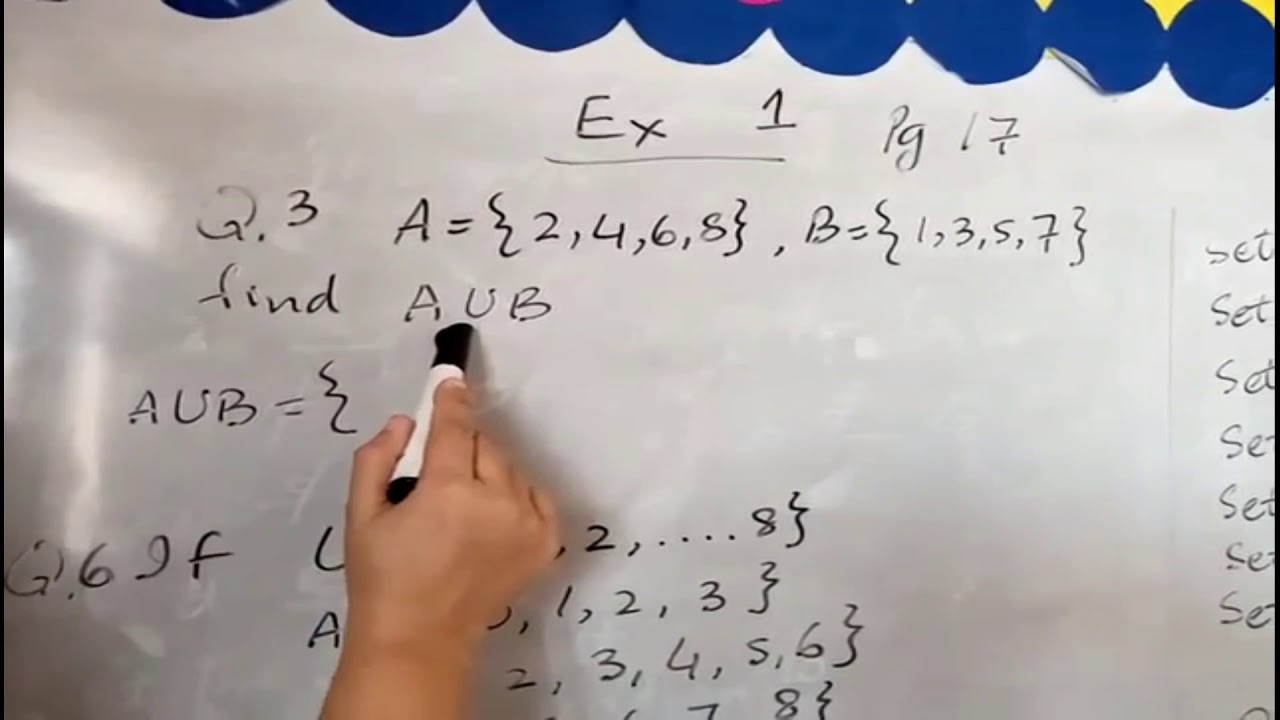 Ex 1 Pg 17
Q.3 A = {2,4,6,8} , B={1,3,5,7}
find A∪B
A∪B = {
Q.6 If , 2, .... 8}
A , 1, 2, 3 }
2, 3, 4, 5, 6}
7 8}
Set
Set
Set
Set
Set
Set
Set